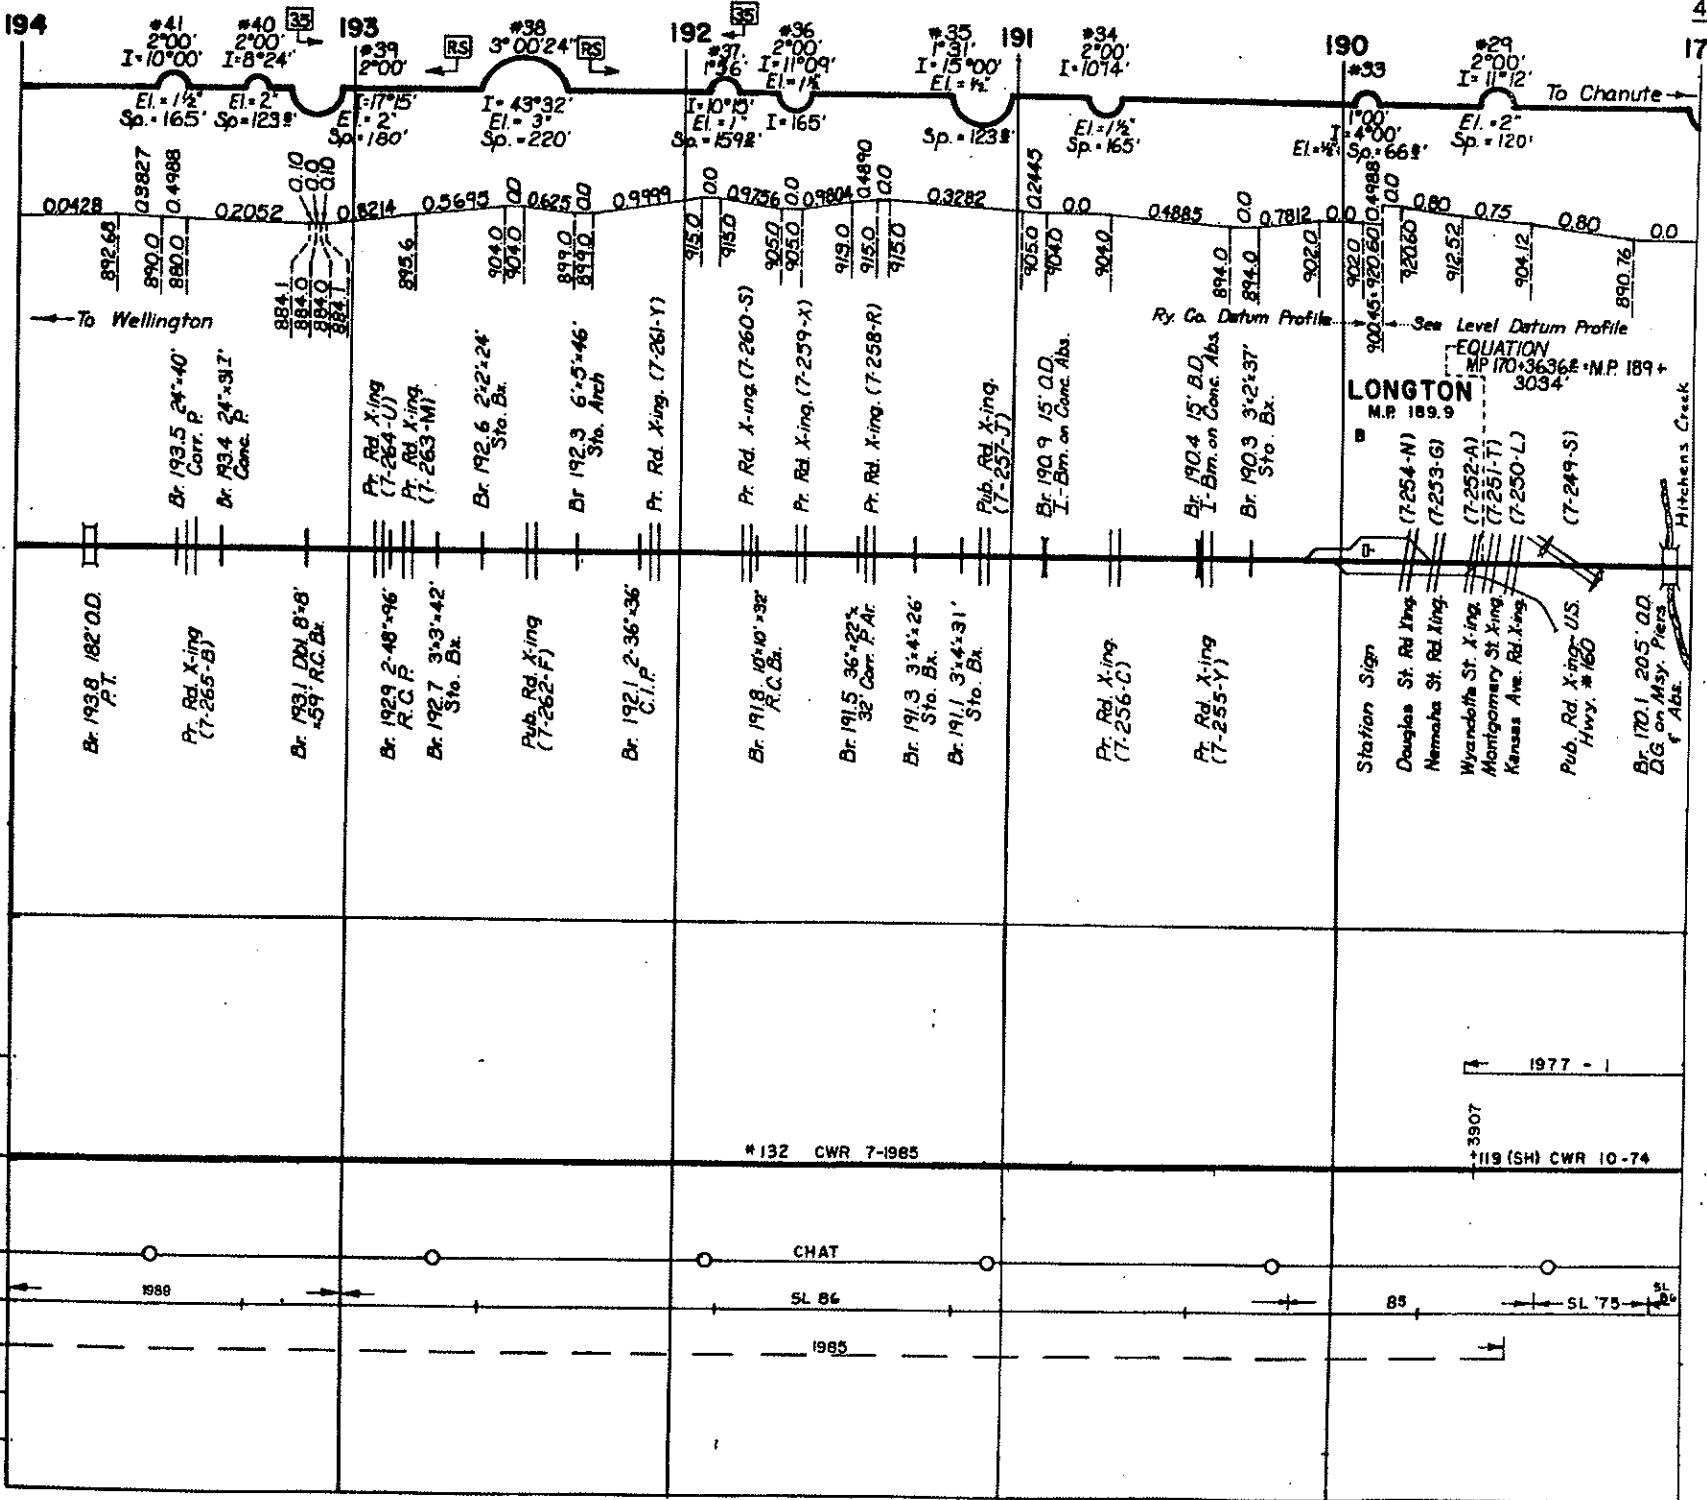 194
#41
2°00'
I=10°00'
El.=1½"
Sp.=165'
#40
2°00'
I=8°24'
El.=2"
Sp=123⁸'
35
193
#39
2°00'
I=17°15'
El.=2"
Sp.=180'
RS
#38
3°00'24"
I=43°32'
El.=3"
Sp.=220'
RS
192
35
#37
1°36'
I=10°15'
El.=1"
#36
2°00'
I=11°09'
El.=1½
I=165'
#35
1°31'
I=15°00'
El.=½"
Sp.=123⁸
191
#34
2°00'
I=10°14'
El.=1½"
Sp.=165'
190
#33
1°00'
I=4°00'
El.=½"
Sp.=66⁸'
#29
2°00'
I=11°12'
El.=2"
Sp.=120'
4
17
To Chanute
0.0428
0.3827
0.4988
0.2052
0.10
0.0
0.10
0.8214
0.5695
0.0
0.625
0.0
0.9999
0.0
0.9756
0.0
0.9804
0.4890
0.0
0.3282
0.2445
0.0
0.4885
0.0
0.7812
0.0
0.4988
0.0
0.80
0.75
0.80
0.0
892.68
890.0
880.0
884.1
884.0
884.0
884.1
895.6
904.0
904.0
899.0
899.0
915.0
915.0
905.0
905.0
919.0
915.0
915.0
905.0
904.0
904.0
894.0
894.0
902.0
902.0
900.45=920.60
920.60
912.52
904.12
890.76
To Wellington
Ry. Co. Datum Profile
Sea Level Datum Profile
EQUATION
MP 170+3636⁸=M.P. 189+
3034'
LONGTON
M.P. 189.9
B
Br. 193.5 24"x40'
Corr. P.
Br. 193.4 24"x31.7'
Conc. P.
Pr. Rd. X-ing
(7-264-U)
Pr. Rd. X-ing.
(7-263-M)
Br. 192.6 2'x2'x24'
Sto. Bx.
Br 192.3 6'x5'x46'
Sto. Arch
Pr. Rd. X-ing. (7-261-Y)
Pr. Rd. X-ing. (7-260-S)
Pr. Rd. X-ing. (7-259-X)
Pr. Rd. X-ing. (7-258-R)
Pub. Rd. X-ing.
(7-257-J)
Br. 190.9 15' O.D.
I.-Bm. on Conc. Abs.
Br. 190.4 15' B.D.
I-Bm. on Conc. Abs.
Br. 190.3 3'x2'x37'
Sto. Bx.
(7-254-N)
(7-253-G)
(7-252-A)
(7-251-T)
(7-250-L)
(7-249-S)
Hitchens Creek
Br. 193.8 182' O.D.
P.T.
Pr. Rd. X-ing
(7-265-B)
Br. 193.1 Dbl. 8'x8'
x59' R.C. Bx.
Br. 192.9 2-48"x96'
R.C.P.
Br. 192.7 3'x3'x42'
Sto. Bx.
Pub. Rd. X-ing
(7-262-F)
Br. 192.1 2-36"x36'
C.I.P.
Br. 191.8 10'x10'x32'
R.C. Bx.
Br. 191.5 36"x22"x
32' Corr. P. Ar.
Br. 191.3 3'x4'x26'
Sto. Bx.
Br. 191.1 3'x4'x31'
Sto. Bx.
Pr. Rd. X-ing.
(7-256-C)
Pr. Rd. X-ing
(7-255-Y)
Station Sign
Douglas St. Rd. Xing.
Nemaha St. Rd. Xing.
Wyandotte St. X-ing.
Montgomery St. X-ing.
Kansas Ave. Rd. X-ing.
Pub. Rd. X-ing-U.S.
Hwy. #160
Br. 170.1 205' O.D.
D.G. on Msy. Piers
& Abs.
1977 - 1
3907
#132 CWR 7-1985
119 (SH) CWR 10-74
CHAT
1989
SL 86
85
SL '75
SL
86
1985